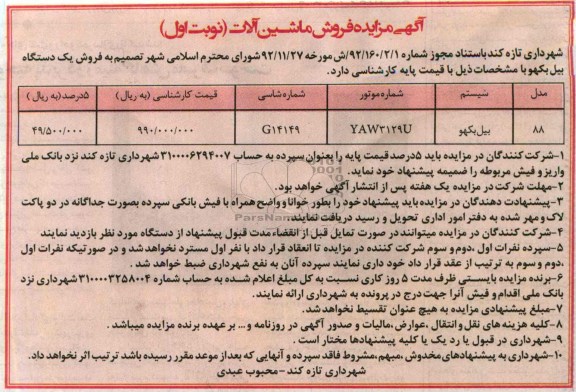 آگهی مزایده فروش ماشین آلات (نوبت اول)
شهرداری تازه کند باستناد مجوز شماره ۹۲/۱۶۰/۲/۱/ش مورخه ۹۲/۱۱/۲۷ شورای محترم اسلامی شهر تصمیم به فروش یک دستگاه
بیل بکهو با مشخصات ذیل با قیمت پایه کارشناسی دارد.
مدل سیستم شماره موتور شماره شاسی قیمت کارشناسی (به ریال) ۵درصد(به ریال)
۸۸ بیل بکهو YAW۳۱۲۹U G۱۴۱۴۹ ۹۹۰/۰۰۰/۰۰۰ ۴۹/۵۰۰/۰۰۰
۱-شرکت کنندگان در مزایده باید ۵درصد قیمت پایه را بعنوان سپرده به حساب ۳۱۰۰۰۰۶۲۹۴۰۰۷ شهرداری تازه کند نزد بانک ملی
واریز و فیش مربوطه را ضمیمه پیشنهاد خود نماید.
۲-مهلت شرکت در مزایده یک هفته پس از انتشار آگهی خواهد بود.
۳-پیشنهادت دهندگان در مزایده باید پیشنهاد خود را بطور خوانا و واضح همراه با فیش بانکی سپرده بصورت جداگانه در دو پاکت
لاک و مهر شده به دفتر امور اداری تحویل و رسید دریافت نمایند.
۴-شرکت کنندگان در مزایده میتوانند در صورت تمایل قبل از انقضاء مدت قبول پیشنهاد از دستگاه مورد نظر بازدید نمایند
۵-سپرده نفرات اول ،دوم و سوم شرکت کننده در مزایده تا انعقاد قرار داد با نفر اول مسترد نخواهد شد و در صورتیکه نفرات اول
،دوم و سوم به ترتیب از عقد قرار داد خود داری نمایند سپرده آنان به نفع شهرداری ضبط خواهد شد .
۶-برنده مزایده بایستی ظرف مدت ۵ روز کاری نسبت به کل مبلغ اعلام شده به حساب شماره ۳۱۰۰۰۰۳۲۵۸۰۰۴ شهرداری نزد
بانک ملی اقدام و فیش آنرا جهت درج در پرونده به شهرداری ارائه نمایند.
۷-مبلغ پیشنهادی مزایده به هیچ عنوان تقسیط نخواهد شد.
۸-کلیه هزینه های نقل و انتقال ،عوارض،مالیات و صدور آگهی در روزنامه و ... بر عهده برنده مزایده میباشد .
۹-شهرداری در قبول یا رد یک یا کلیه پیشنهادها مختار است .
۱۰-شهرداری به پیشنهادهای مخدوش ،مبهم،مشروط فاقد سپرده و آنهایی که بعداز موعد مقرر رسیده باشد ترتیب اثر نخواهد داد.
شهرداری تازه کند - محبوب عبدی